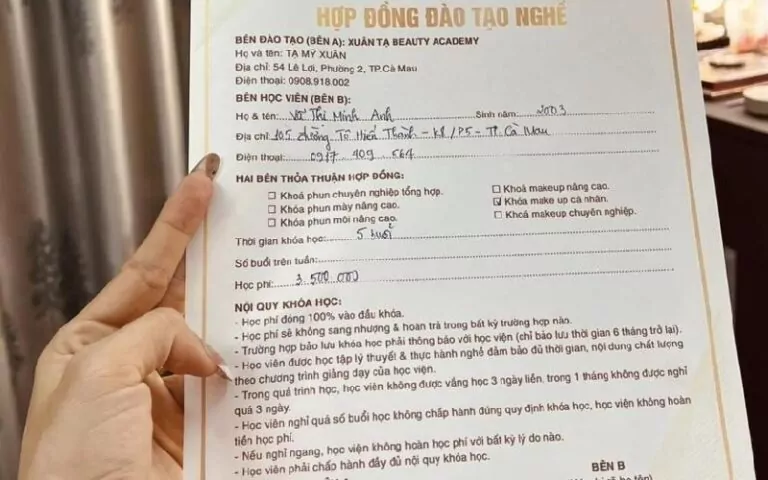 HỢP ĐỒNG ĐÀO TẠO NGHỀ
BÊN ĐÀO TẠO (BÊN A): XUÂN TẠ BEAUTY ACADEMY
Họ và tên: TẠ MỸ XUÂN
Địa chỉ: 54 Lê Lợi, Phường 2, TP.Cà Mau
Điện thoại: 0908.918.002
BÊN HỌC VIÊN (BÊN B):
Họ & tên: Võ Thị Minh Anh Sinh năm: 2003
Địa chỉ: 105 đường Tô Hiến Thành - K8/P5 - TP. Cà Mau
Điện thoại: 0917 409 564
HAI BÊN THỎA THUẬN HỢP ĐỒNG:
☐ Khoá phun chuyên nghiệp tổng hợp. ☐ Khoá makeup nâng cao.
☐ Khóa phun mày nâng cao. ☑ Khóa make up cá nhân.
☐ Khóa phun môi nâng cao. ☐ Khoá makeup chuyên nghiệp.
Thời gian khóa học: 5 buổi
Số buổi trên tuần:
Học phí: 3.500.000
NỘI QUY KHÓA HỌC:
- Học phí đóng 100% vào đầu khóa.
- Học phí sẽ không sang nhượng & hoàn trả trong bất kỳ trường hợp nào.
- Trường hợp bảo lưu khóa học phải thông báo với học viện (chỉ bảo lưu thời gian 6 tháng trở lại).
- Học viên được học tập lý thuyết & thực hành nghề đảm bảo đủ thời gian, nội dung chất lượng
theo chương trình giảng dạy của học viện.
- Trong quá trình học, học viên không được vắng học 3 ngày liền, trong 1 tháng không được nghỉ
quá 3 ngày.
- Học viên nghỉ quá số buổi học không chấp hành đúng quy định khóa học, học viện không hoàn
tiền học phí.
- Nếu nghỉ ngang, học viện không hoàn học phí với bất kỳ lý do nào.
- Học viên phải chấp hành đầy đủ nội quy khóa học.
BÊN B